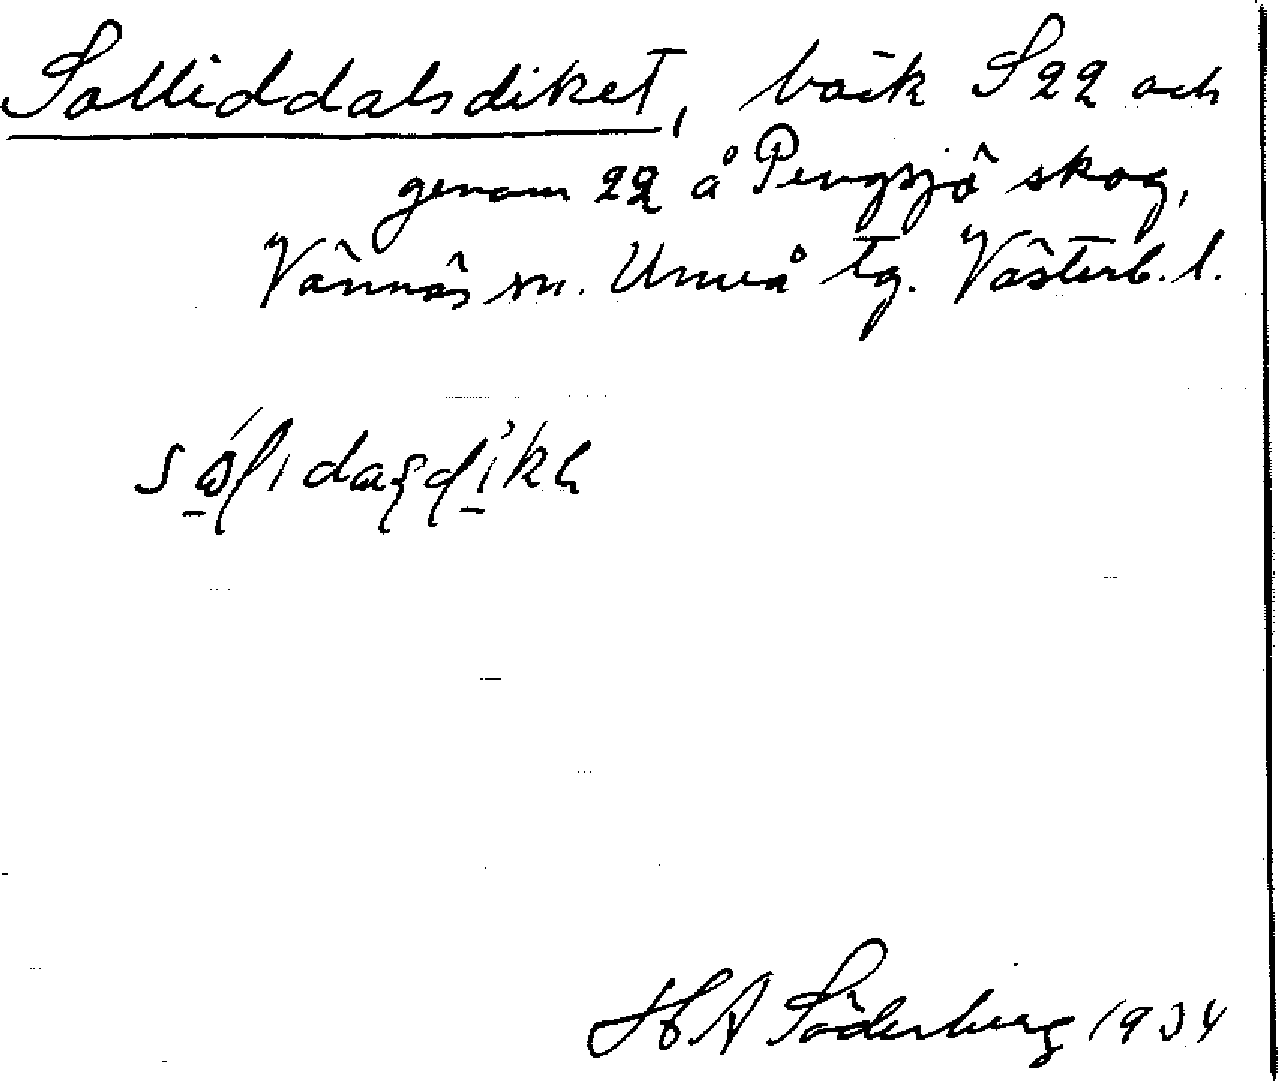 Solliddalsdiket, bäck S 22 och
genom 22 å Pengsjö skog,
Vännäs sn. Umeå tg. Västerb. l.
H A Söderberg 1934